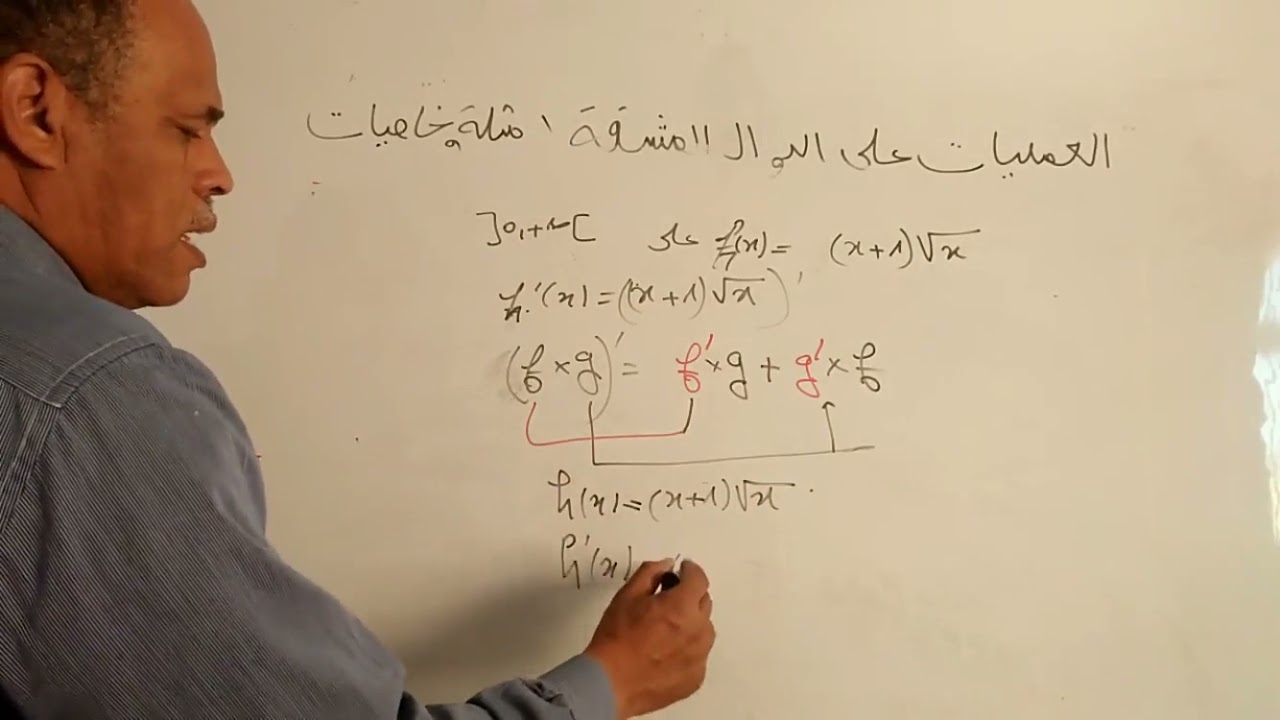 العمليات على الدوال المشتقة امثلة وخاصيات
]0,+∞[ على h(x)= (x+1)√x
h'(x)=((x+1)√x)'
(f×g)'= f'×g+g'×f
h(x)=(x+1)√x.
h'(x)